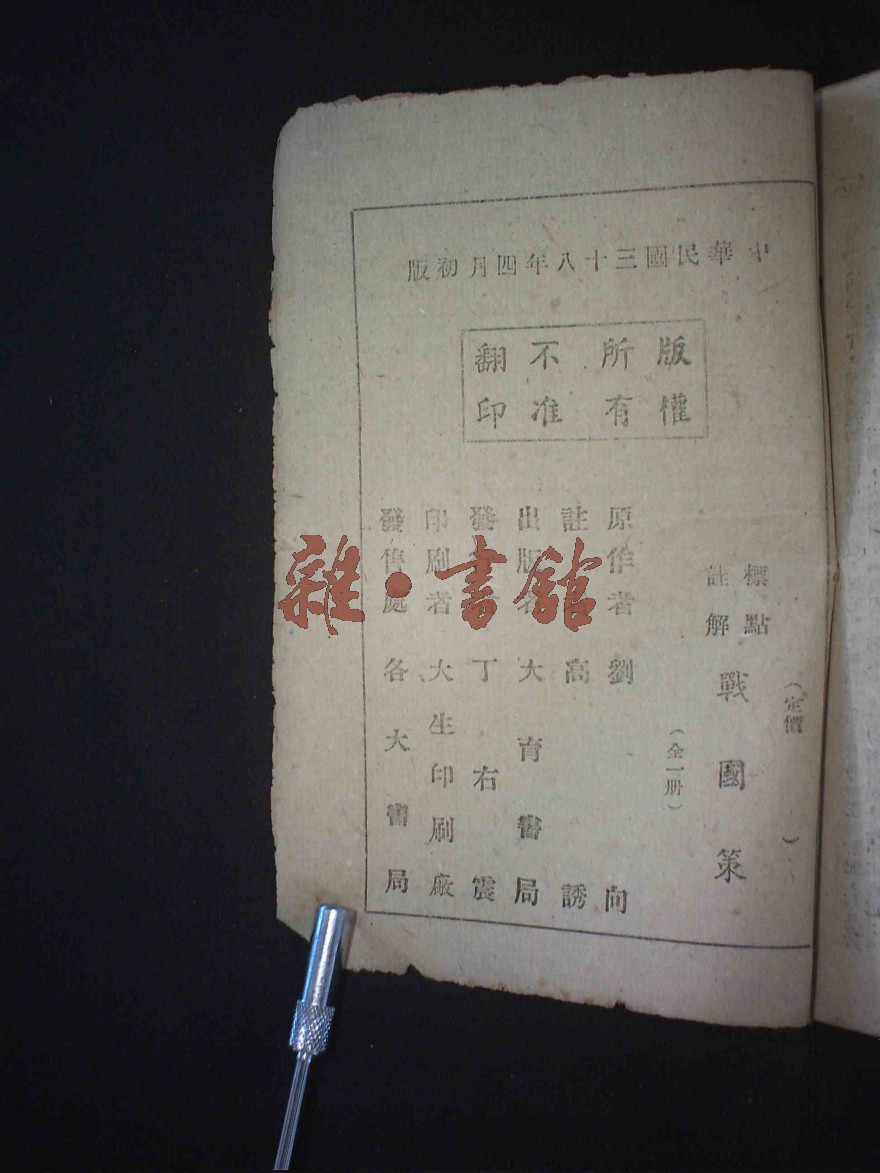 中華民國三十八年四月初版
版權
所有
不准
翻印
(定價 )
標點
註解
戰國策
(全一册)
原作者 劉向
註 高誘
出版者 大育書局
發 丁右震
印刷者 大生印刷廠
發售處 各大書局
雜·書館